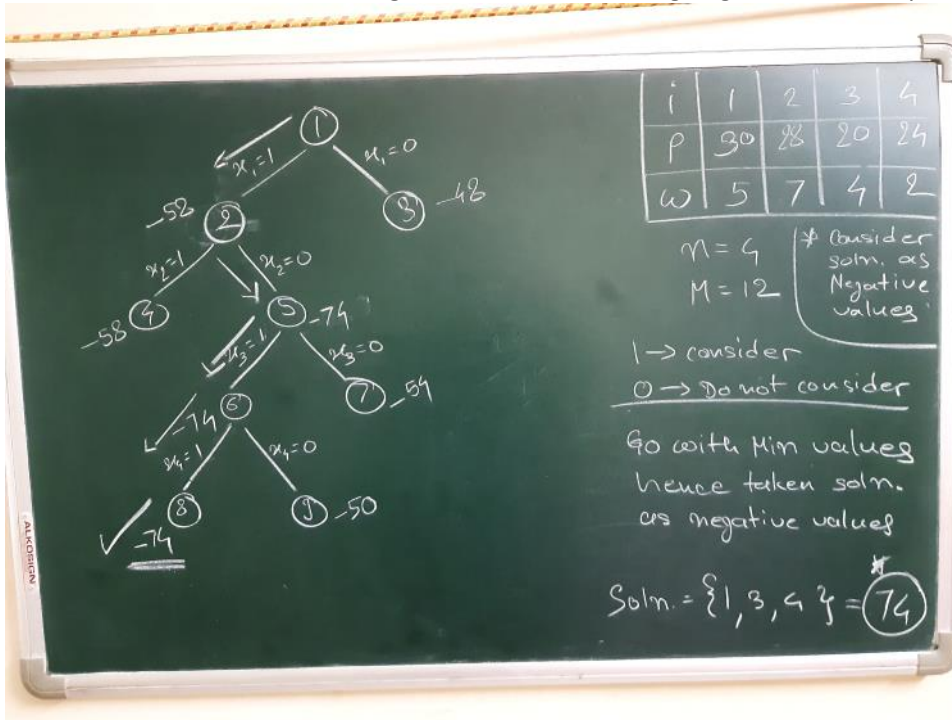 1
x₁=1
x₁=0
-58
2
3
-48
x₂=1
x₂=0
-58
4
5
-74
x₃=1
x₃=0
-74
6
7
-54
x₄=1
x₄=0
8
9
-50
-74
i 1 2 3 4
P 30 28 20 24
ω 5 7 4 2
n=4
M=12
* Consider
soln. as
Negative
values
1→ consider
0→ Do not consider
Go with Min values
hence taken soln.
as negative values
*
Soln.={1,3,4}=74
ALKOSIGN